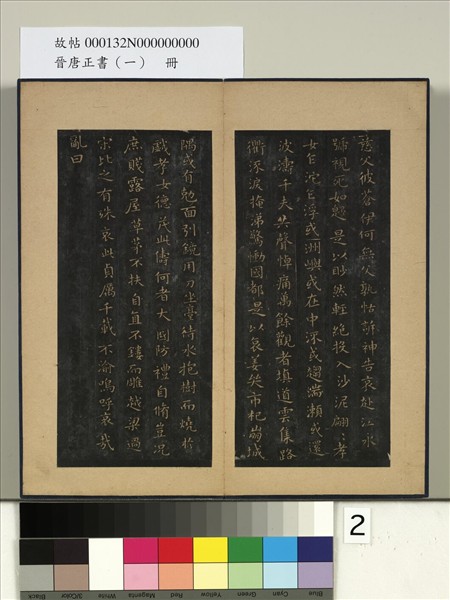 故帖 000132N000000000
晉唐正書（一） 冊
父彼蒼伊何無父孰怙訴神告哀赴江永
號視死如歸是以眇然輕絕投入沙泥翩〻孝
女乍沉乍浮或洲嶼或在中流或趨湍瀨或還
波濤千夫失聲悼痛萬餘觀者填道雲集路
衢流淚掩涕驚慟國都是以哀姜哭市杞崩城
隅或有勉面引鏡用刀坐臺待水抱樹而燒於
戲孝女德茂此儔何者大國防禮自脩豈況
庶賤露屋草茅不扶自直不鏤而雕越梁過
宋比之有殊哀此貞厲千載不渝嗚呼哀哉
亂曰
2
Black
3/Color
White
Magenta
Red
Yellow
Green
Cyan
Blue